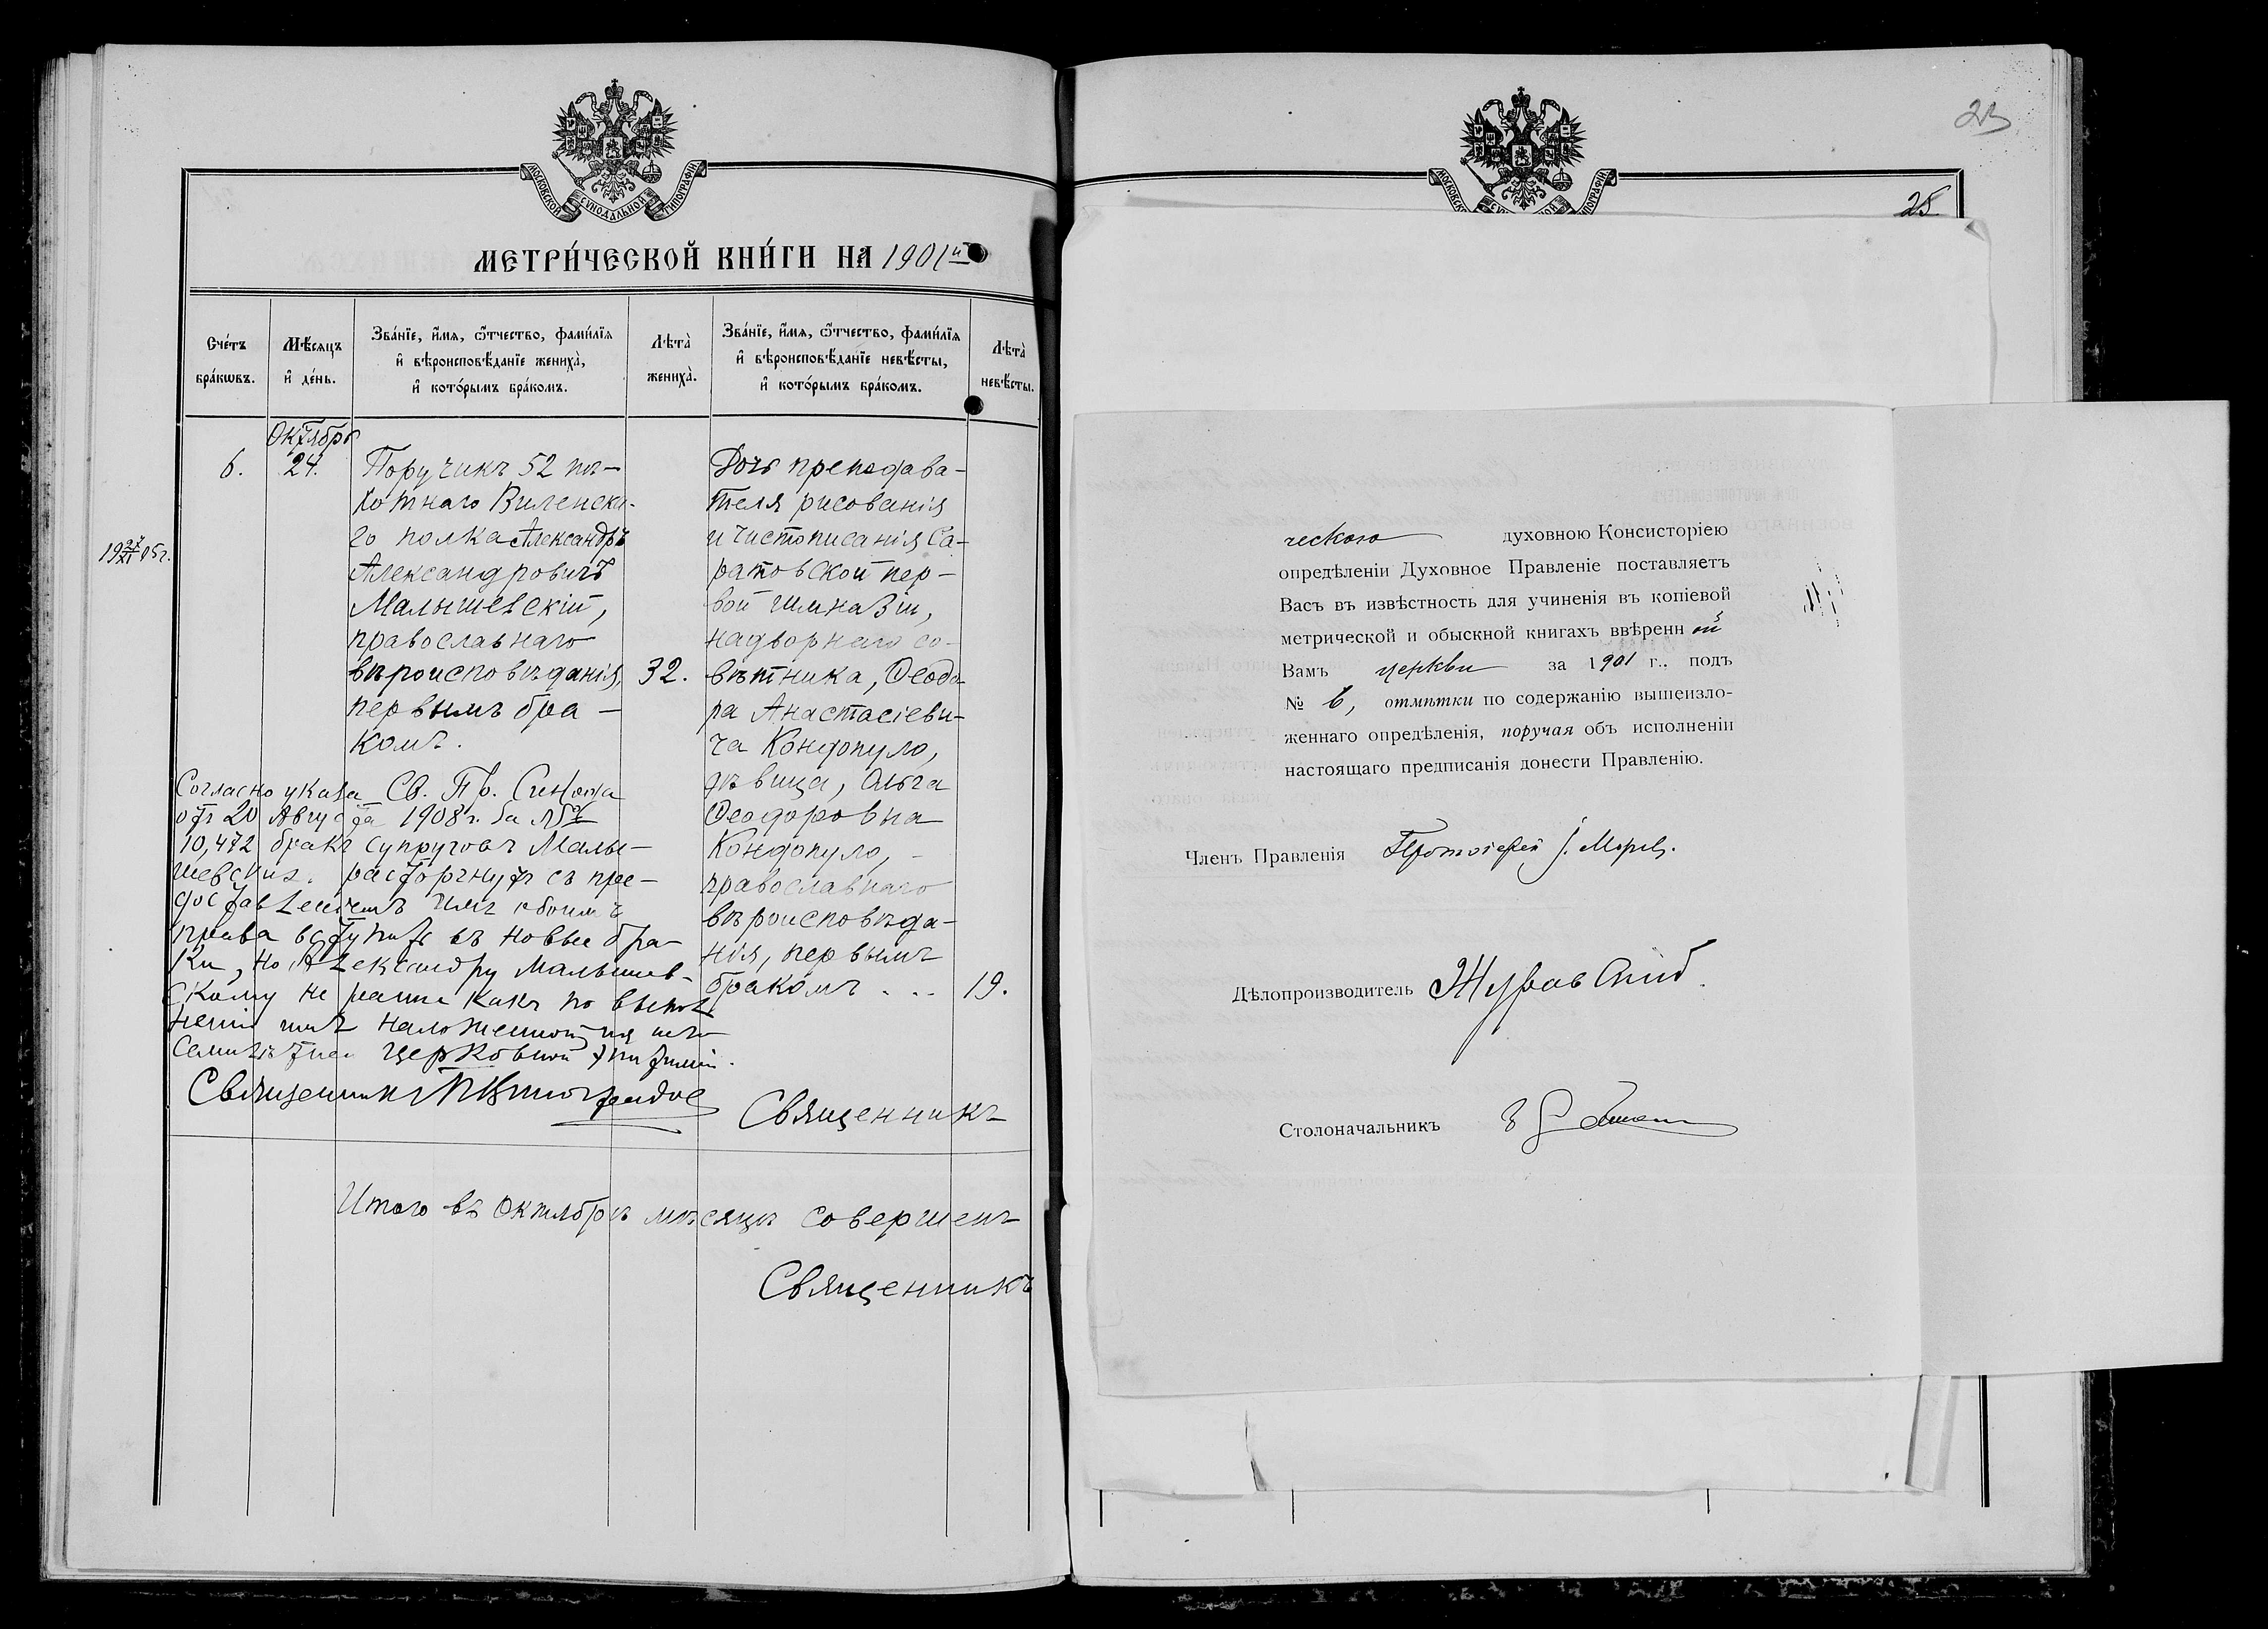 МОСКОВСКОЙ СѴНОДАЛЬНОЙ ТИПОГРАФІИ.
МЕТРИ́ЧЕСКОЙ КНИ́ГИ НА 1901й
Сче́тъ бра́кѡвъ.
Мѣ́сяцъ и҆ де́нь.
Зва́нїе, и҆́мѧ, ѻ҆́тчество, фами́лїѧ
и҆ вѣроисповѣ́данїе жениха̀,
и҆ кото́рымъ бра́комъ.
Лѣта̀ жениха̀.
Зва́нїе, и҆́мѧ, ѻ҆́тчество, фами́лїѧ
и҆ вѣроисповѣ́данїе невѣ́сты,
и҆ кото́рымъ бра́комъ.
Лѣта̀ невѣ́сты.
Октябрь
6.
24.
Поручикъ 52 пѣ-
хотнаго Виленска-
го полка Александръ
Александровичъ
Малышевскій,
православнаго
вѣроисповѣданія,
первымъ бра-
комъ.
32.
Дочь преподава-
теля рисованія
и чистописанія Са-
ратовской пер-
вой гимназіи,
надворнаго со-
вѣтника, Ѳеодо-
ра Анастасіеви-
ча Кондопуло,
дѣвица, Ольга
Ѳеодоровна
Кондопуло,
православнаго
вѣроисповѣда-
нія, первымъ
бракомъ . . .
19.
Согласно указа Св. Пр. Синода
отъ 20 Августа 1908 г. за №
10,472 бракъ супруговъ Малы-
шевскихъ расторгнутъ съ пре-
доставленіемъ имъ обоимъ
права вступить въ новые бра-
ки, но Александру Малышев-
скому не ранее какъ по выпол
неніи имъ наложенной на него
семилѣтней церковной эпитиміи.
Священникъ
Священникъ
Итого въ Октябрѣ мѣсяцѣ совершенъ
Священникъ
23
25.
МОСКОВСК
СѴ НОЙ
ИПОГРАФІИ.
ческою духовною Консисторіею
опредѣленіи Духовное Правленіе поставляетъ
Васъ въ извѣстность для учиненія въ копіевой
метрической и обыскной книгахъ ввѣренн ой
Вамъ церкви за 1901 г.. подъ
№ 6, отмѣтки по содержанію вышеизло-
женнаго опредѣленія, поручая объ исполненіи
настоящаго предписанія донести Правленію.
Членъ Правленія Протоіерей І. Моревъ.
Дѣлопроизводитель Журавскій
Столоначальникъ